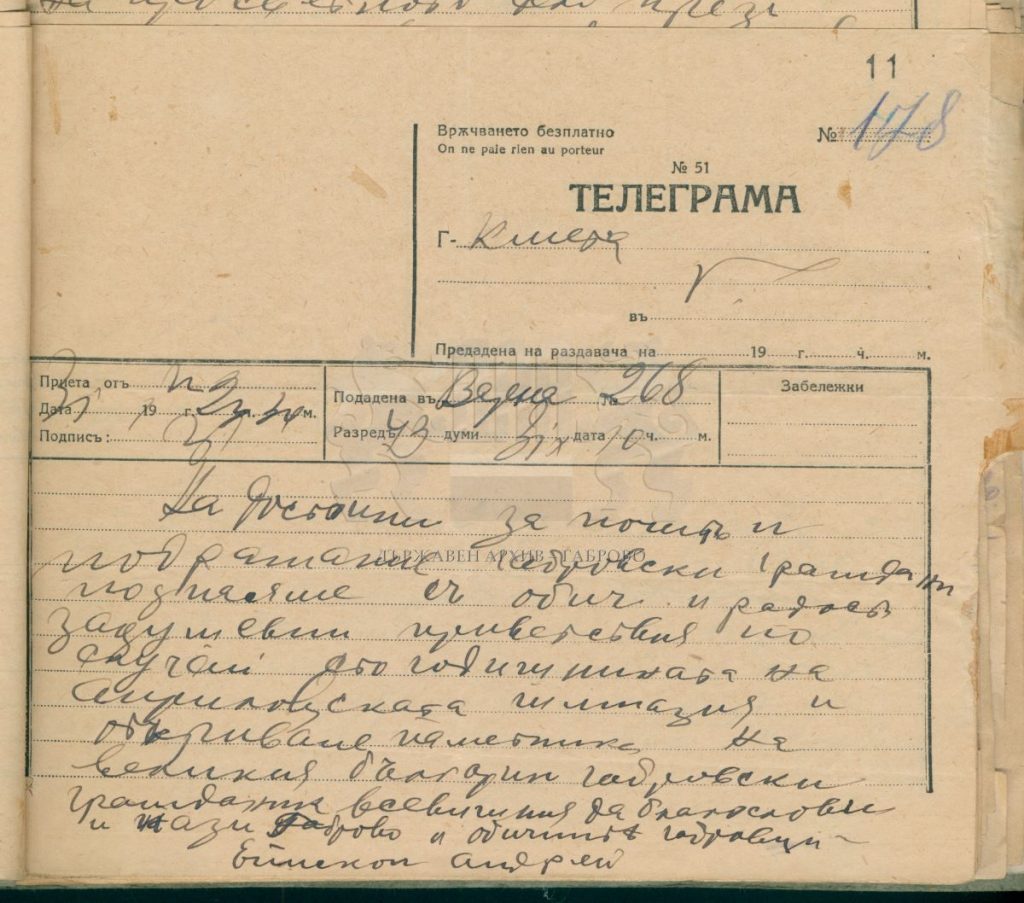 11
Врѫчването безплатно
On ne paie rien au porteur
№ 178
№ 51
ТЕЛЕГРАМА
Г- Кмета
въ
Предадена на раздавача на 19 г. ч. м.
Приета отъ
Дата 19 г. ч. м.
Подпись:
Подадена въ Варна № 268
Разредъ 43 думи 31/х дата 10 ч. м.
Забележки
На достойни за почить и
подражание габровски граждани
поднасяме съ обич и радость
задушевни приветствия по
случай сто годишнината на
Априловската гимназия и
откриване паметник на
великия българин габровски
гражданик всевишния да благослови
и пази Габрово и обичните габровци -
Епископ Андрей
ДЪРЖАВЕН АРХИВ - ГАБРОВО